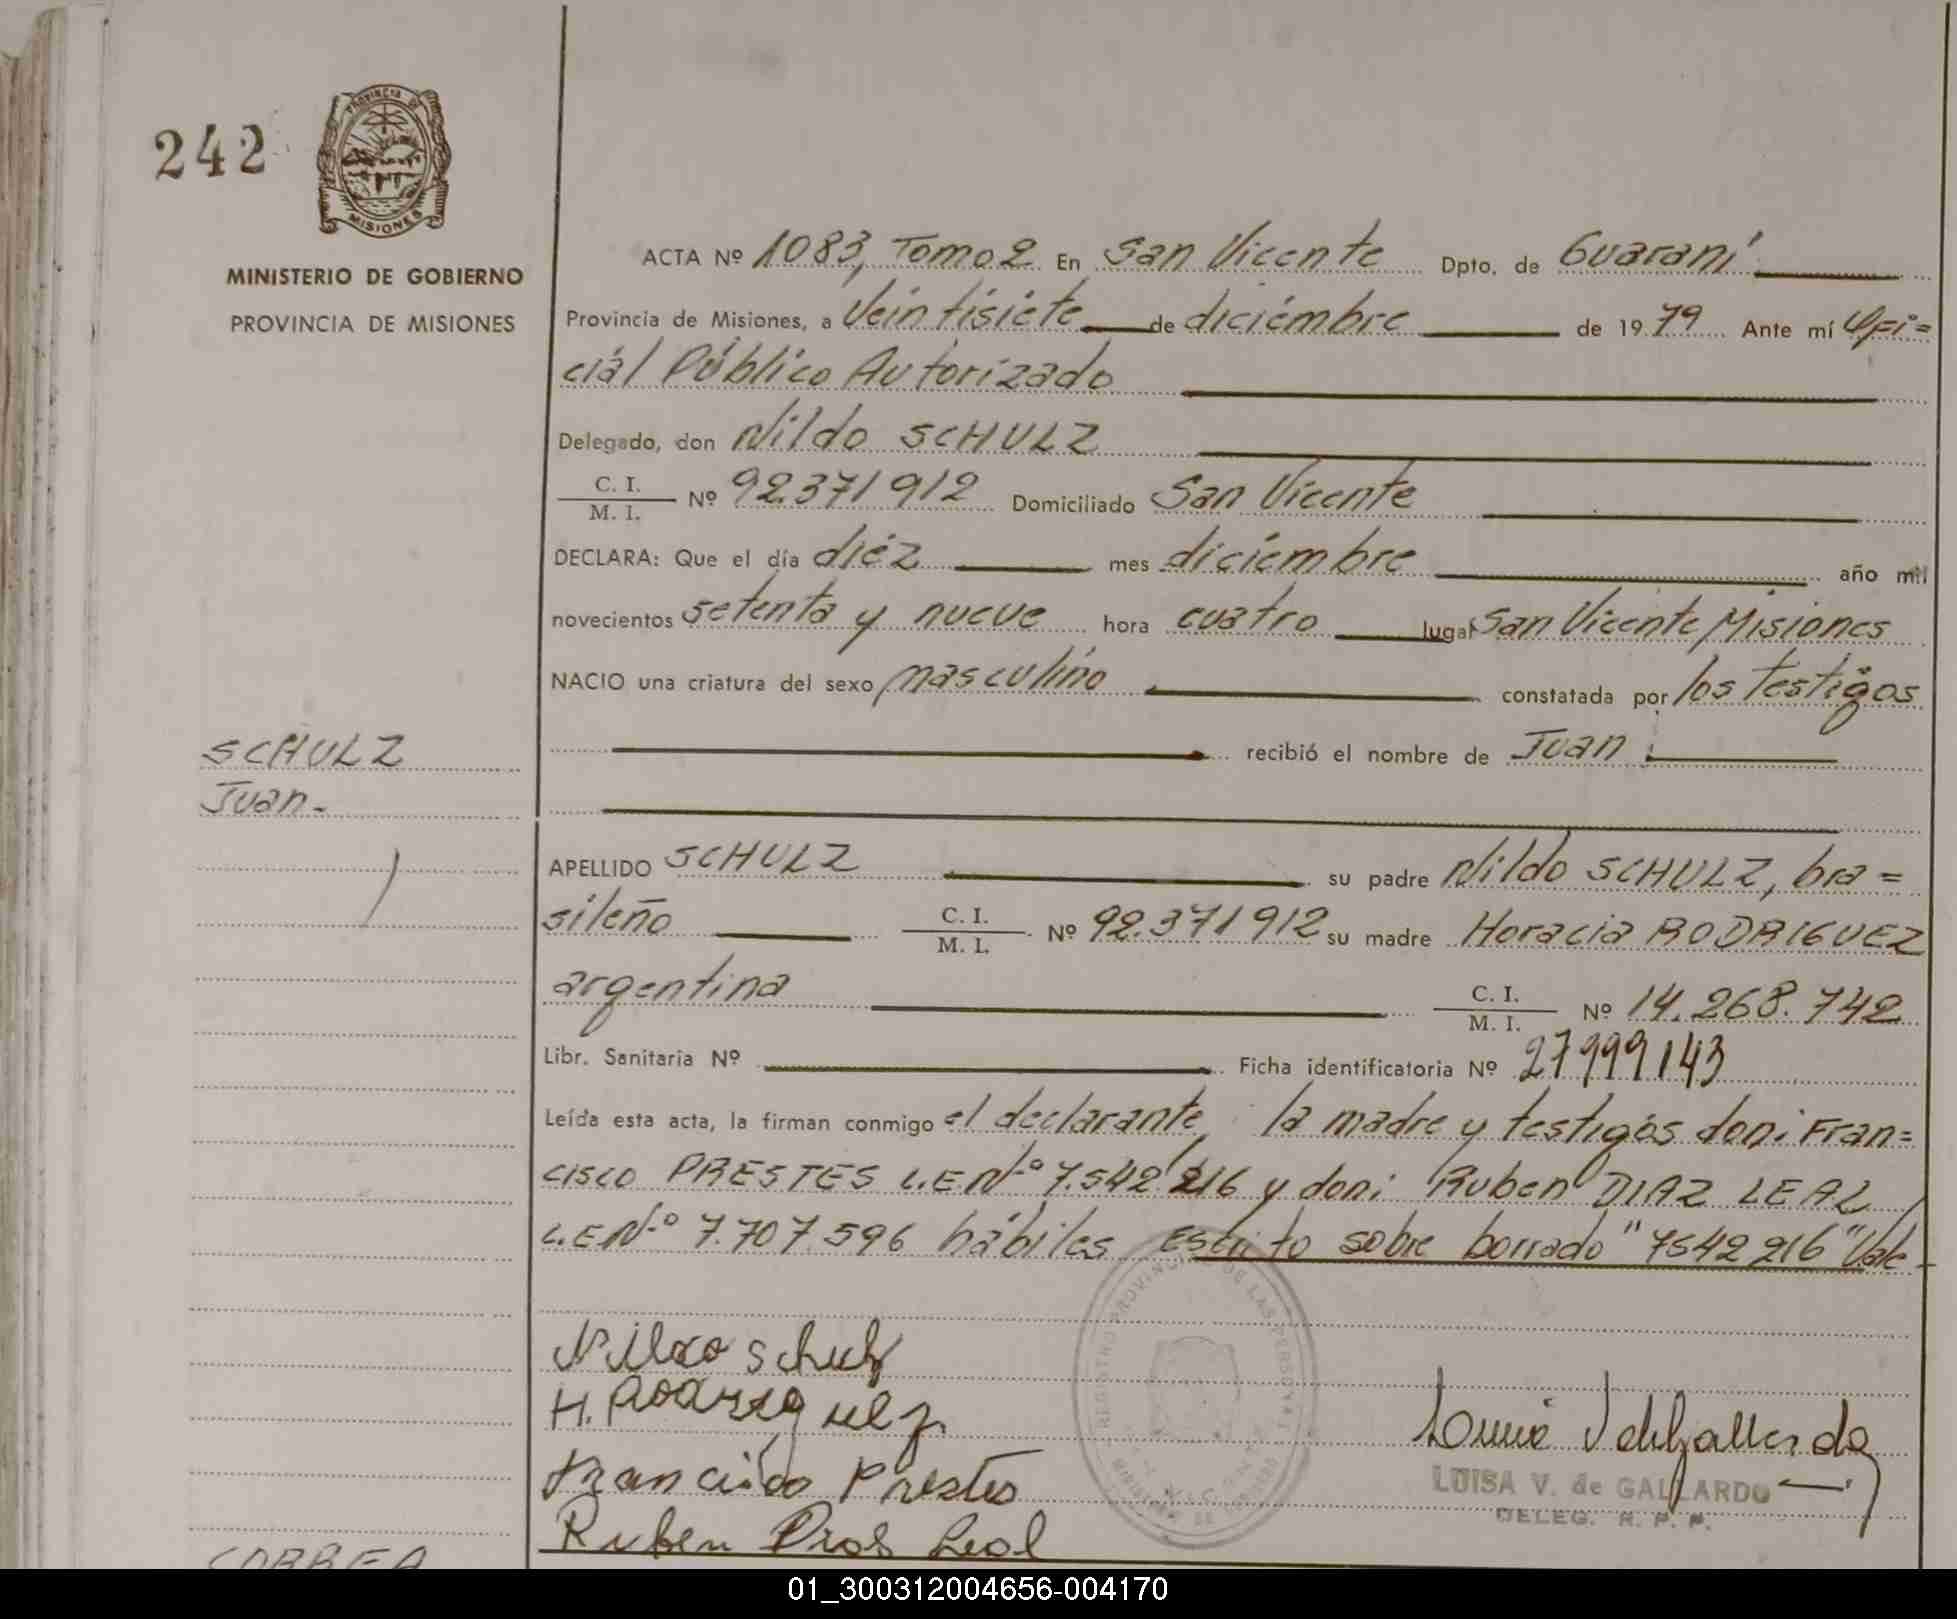 242
PROVINCIA DE
MISIONES
MINISTERIO DE GOBIERNO
PROVINCIA DE MISIONES
ACTA Nº 1083, Tomo 2 En San Vicente Dpto. de Guaraní
Provincia de Misiones, a Veintisiete de diciembre de 1979 Ante mí Ofi=
cial Público Autorizado
Delegado, don Nildo SCHULZ
C. I.
M. I. Nº 92.371912 Domiciliado San Vicente
DECLARA: Que el día diéz mes diciembre año mil
novecientos setenta y nueve hora cuatro lugar San Vicente, Misiones
NACIO una criatura del sexo masculino constatada por los testigos
recibió el nombre de Juan
SCHULZ
Juan.-
APELLIDO SCHULZ su padre Nildo SCHULZ, bra=
sileño C. I.
M. I. Nº 92.371912 su madre Horacia RODRIGUEZ
argentina C. I.
M. I. Nº 14.268.742
Libr. Sanitaria Nº Ficha identificatoria Nº 27999143
Leída esta acta, la firman conmigo el declarante, la madre y testigos don: Fran=
cisco PRESTES L.E Nº 7.542216 y don: Ruben DIAZ LEAL
L.E Nº 7.707.596 hábiles Escrito sobre borrado "7542216" Vale
Nildo Schulz
H. Rodriguez
Francisco Prestes
Ruben Dias Leal
REGISTRO PROVINCIAL DE LAS PERSONAS
MINISTERIO DE GOBIERNO
LUISA V. de GALLARDO
DELEG. R. P. P.
CORREA
01_300312004656-004170